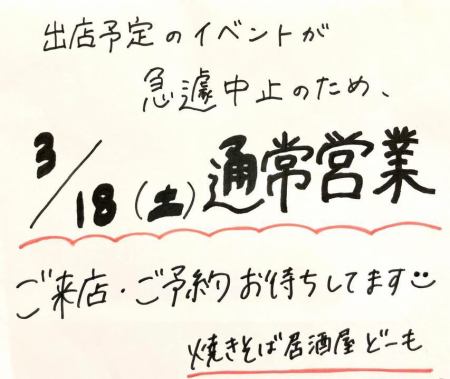 出店予定のイベントが
急遽中止のため、
3/18(土)通常営業
ご来店・ご予約お待ちしてます
焼きそば居酒屋どーも